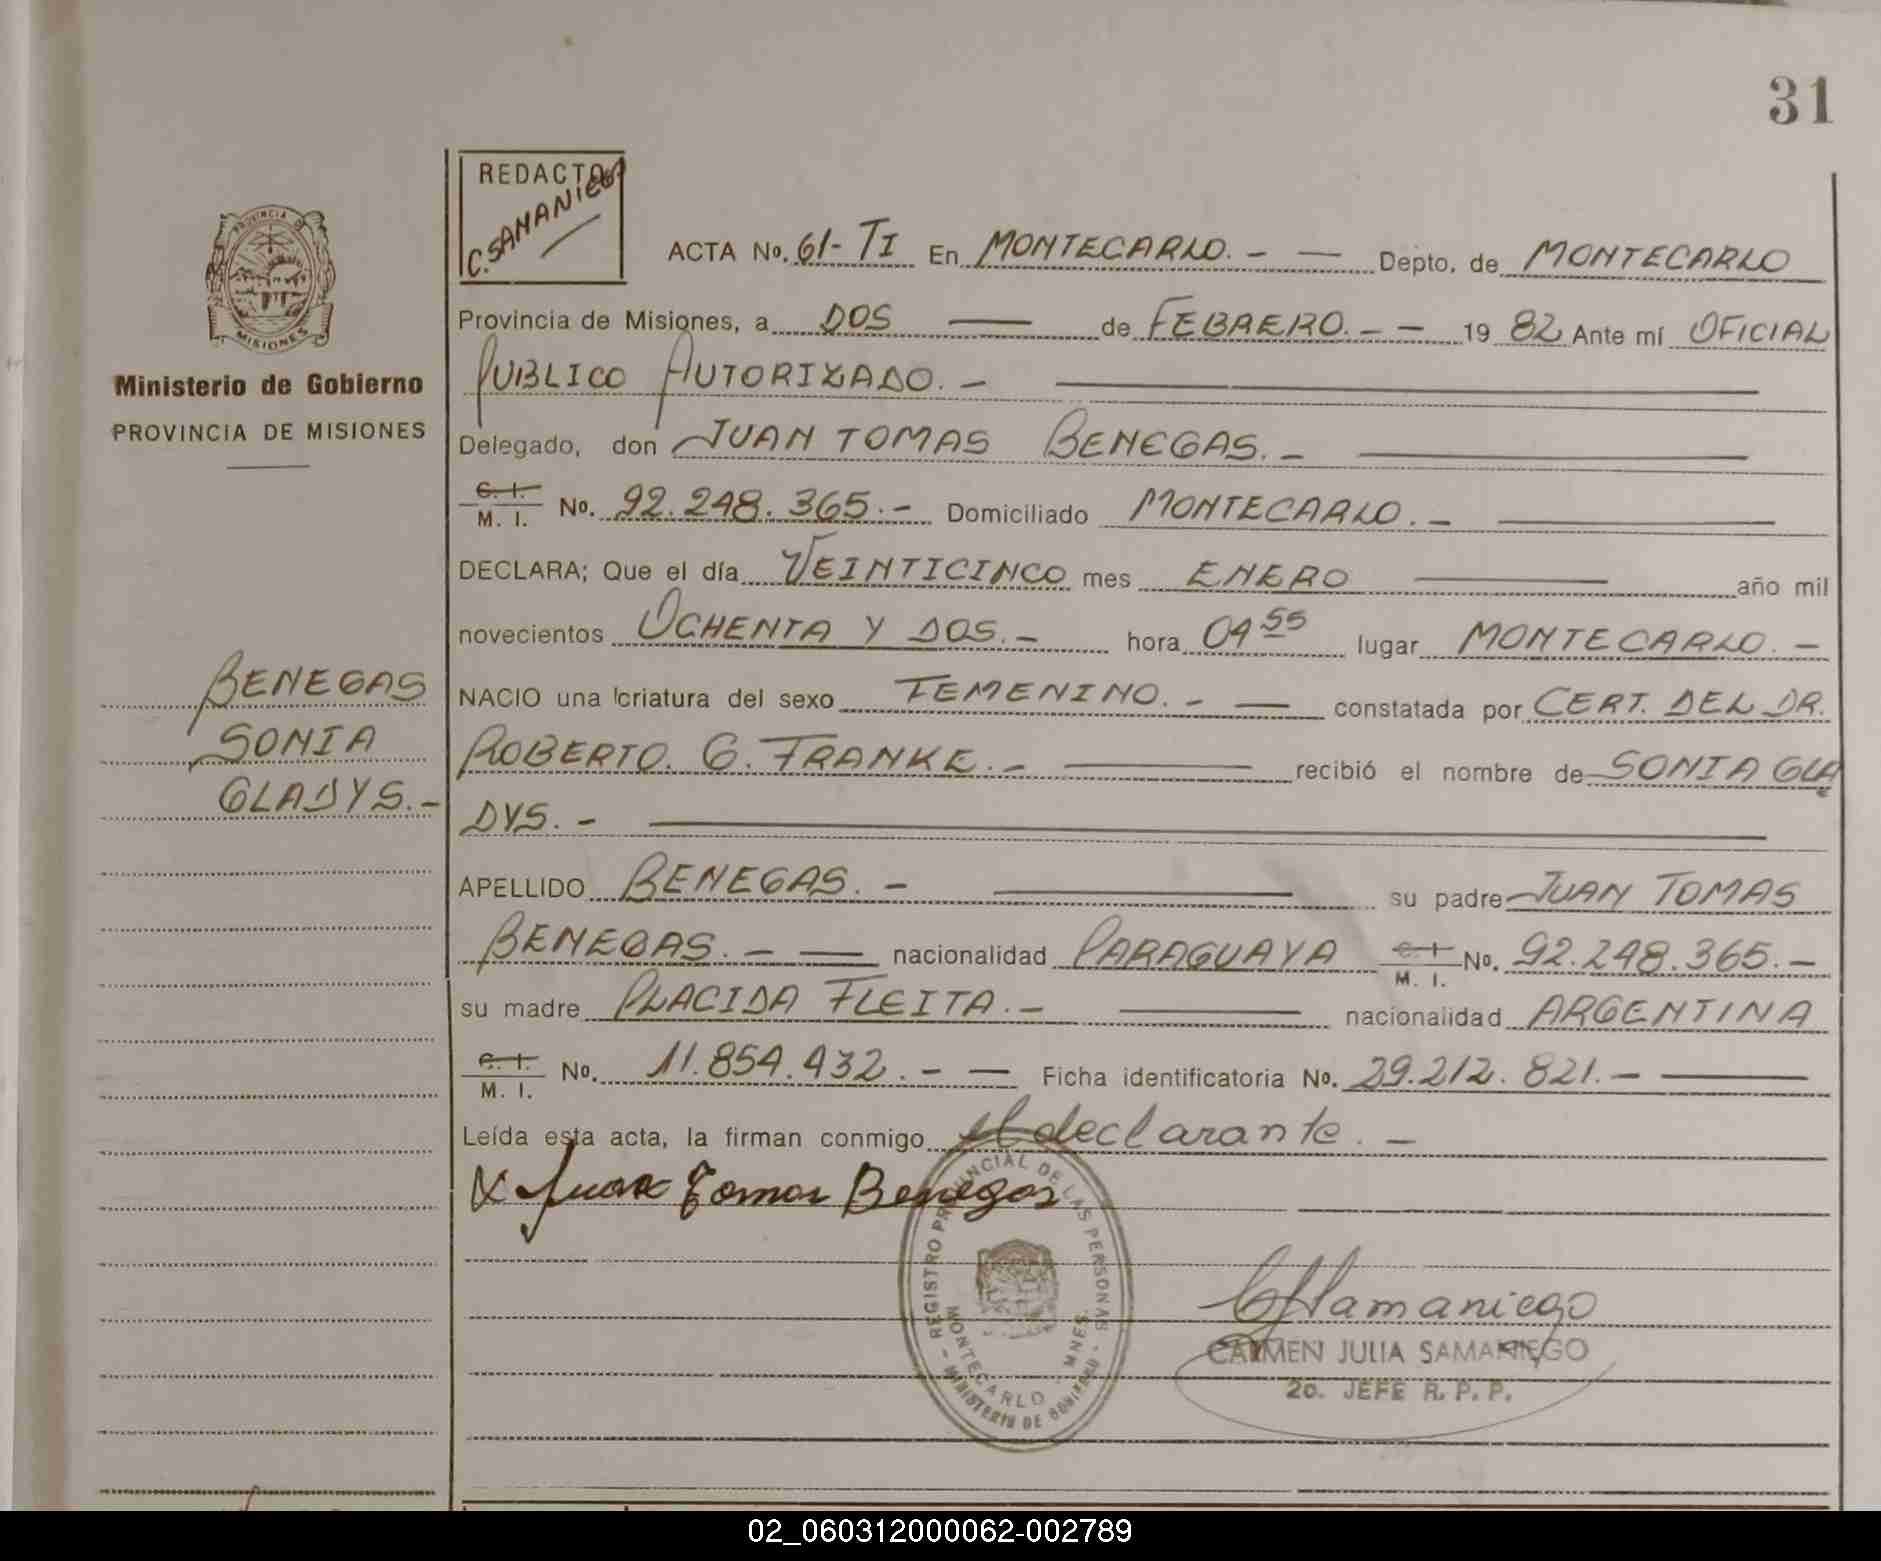 31
REDACTO
C. SAMANIEGO
PROVINCIA DE
MISIONES
Ministerio de Gobierno
PROVINCIA DE MISIONES
BENEGAS
SONIA
GLADYS.-
ACTA No. 61-TI En MONTECARLO. - — Depto. de MONTECARLO
Provincia de Misiones, a DOS — de FEBRERO. - - 19 82 Ante mí OFICIAL
PUBLICO AUTORIZADO. -
Delegado, don JUAN TOMAS BENEGAS. -
C. I. M. I. No. 92.248.365.- Domiciliado MONTECARLO. -
DECLARA; Que el día VEINTICINCO mes ENERO año mil
novecientos OCHENTA Y DOS. - hora 04 55 lugar MONTECARLO. -
NACIO una criatura del sexo FEMENINO. - — constatada por CERT. DEL DR.
ROBERTO. G. FRANKE. - recibió el nombre de SONIA GLA
DYS. -
APELLIDO BENEGAS. - su padre JUAN TOMAS
BENEGAS. - — nacionalidad PARAGUAYA C. I. M. I. No. 92.248.365. -
su madre PLACIDA FLEITA. - nacionalidad ARGENTINA
C. I. M. I. No. 11.854.432. - — Ficha identificatoria No. 29.212.821. -
Leída esta acta, la firman conmigo el declarante. -
X Juan Tomas Benegas
REGISTRO PROVINCIAL DE LAS PERSONAS
MONTECARLO - MNES.
MINISTERIO DE GOBIERNO
CJSamaniego
CARMEN JULIA SAMANIEGO
2o. JEFE R. P. P.
02_060312000062-002789